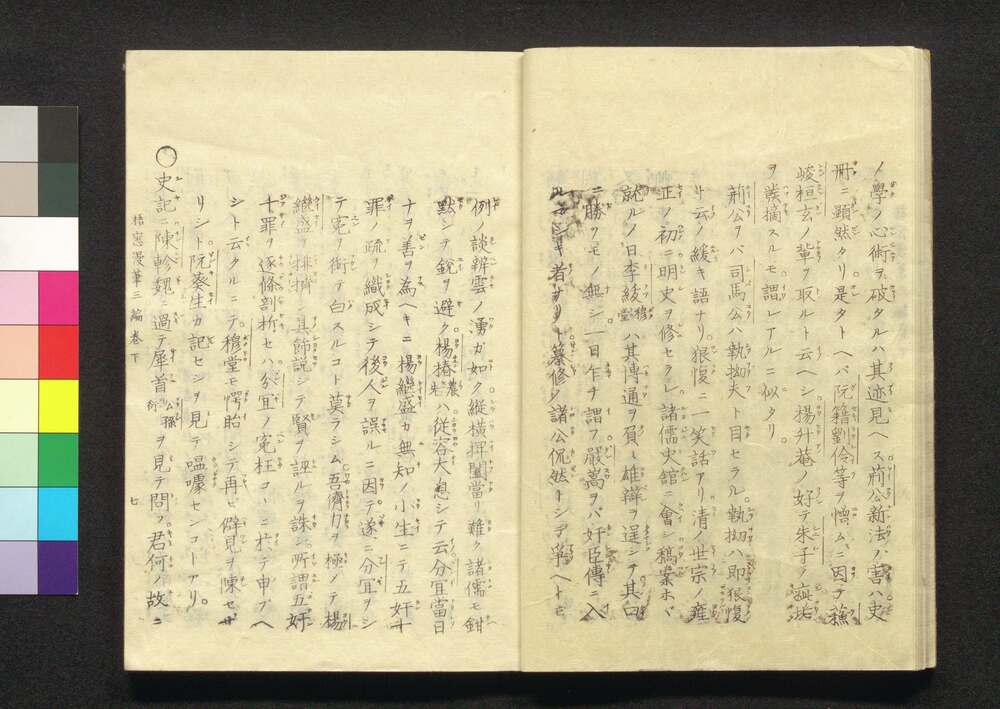 ノ學ノ心術ヲ破タルハ其迹見ヘス荊公新法ノ害ハ史
冊ニ顕然タリ是タトヘバ阮籍劉伶等ヲ憎ムニ因テ穐
峻桓玄ノ輩ヲ取ルト云ヘシ楊升菴ノ好テ朱子ノ
ヲ摘スルモ謂レアルニ似タリ
荊公ヲバ司馬公ハ執拗夫ト目セラル執拗ハ即狠愎
ト云ノ緩キ語ナリ狠愎ニ一笑話アリ清ノ世宗ノ雍
正ノ初ニ明史ヲ修セクレ諸儒史館ニ會シ稿案ホヾ
就ルノ日李穆堂ハ其博通ヲ負ヒ雄辯ヲ逞シテ其口
ニ勝フモノ無シ一日乍チ謂フ嚴嵩ヲバ奸臣傳ニ入
者ナリト纂修ノ諸公侃然トシテ爭ヘトモ
例ノ談辨雲ノ湧ガ如ク縱橫捭闔當リ難ク諸儒モ鉗
黙シテ鋭ヲ避ク楊椿農先ハ從容大息シテ云分宜當日
ナヲ善ヲ為ヘキニ楊繼盛カ無知ノ小生ニテ五奸十
罪ノ疏ヲ織成シテ後人ヲ誤ルニ因テ遂ニ分宜ヲシ
テ寃ヲ衔テ白スルコト莫ラシム吾儕力ヲ極ノテ楊
繼盛ヲ排擠シ其飾説シテ賢ヲ誣ルヲ誅シ所謂五奸
十罪ヲ逐條剖析セハ分宜ノ寃枉コヽニ於テ申フヘ
シト云タルニテ穆堂モ愕眙シテ再ヒ僻見ヲ陳セザ
リシト阮葵生カ記セシヲ見テ嗢噱センコトアリ
○史記ニ陳軫魏ニ過テ犀首公孫衍ヲ見テ問フ君何ノ故ニ
梧窓漫筆三編卷下
七